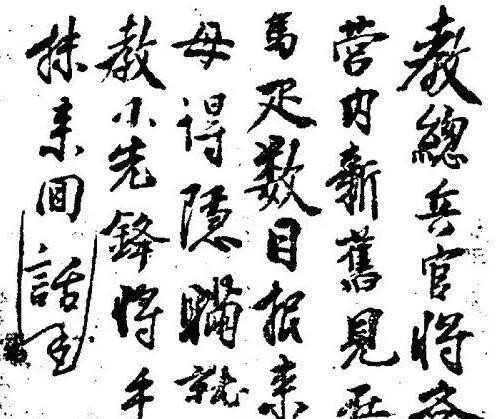 教總兵官將各
营内新舊見在
馬疋数目报来
毋得隱瞞就
教小先鋒將手
抹来回話